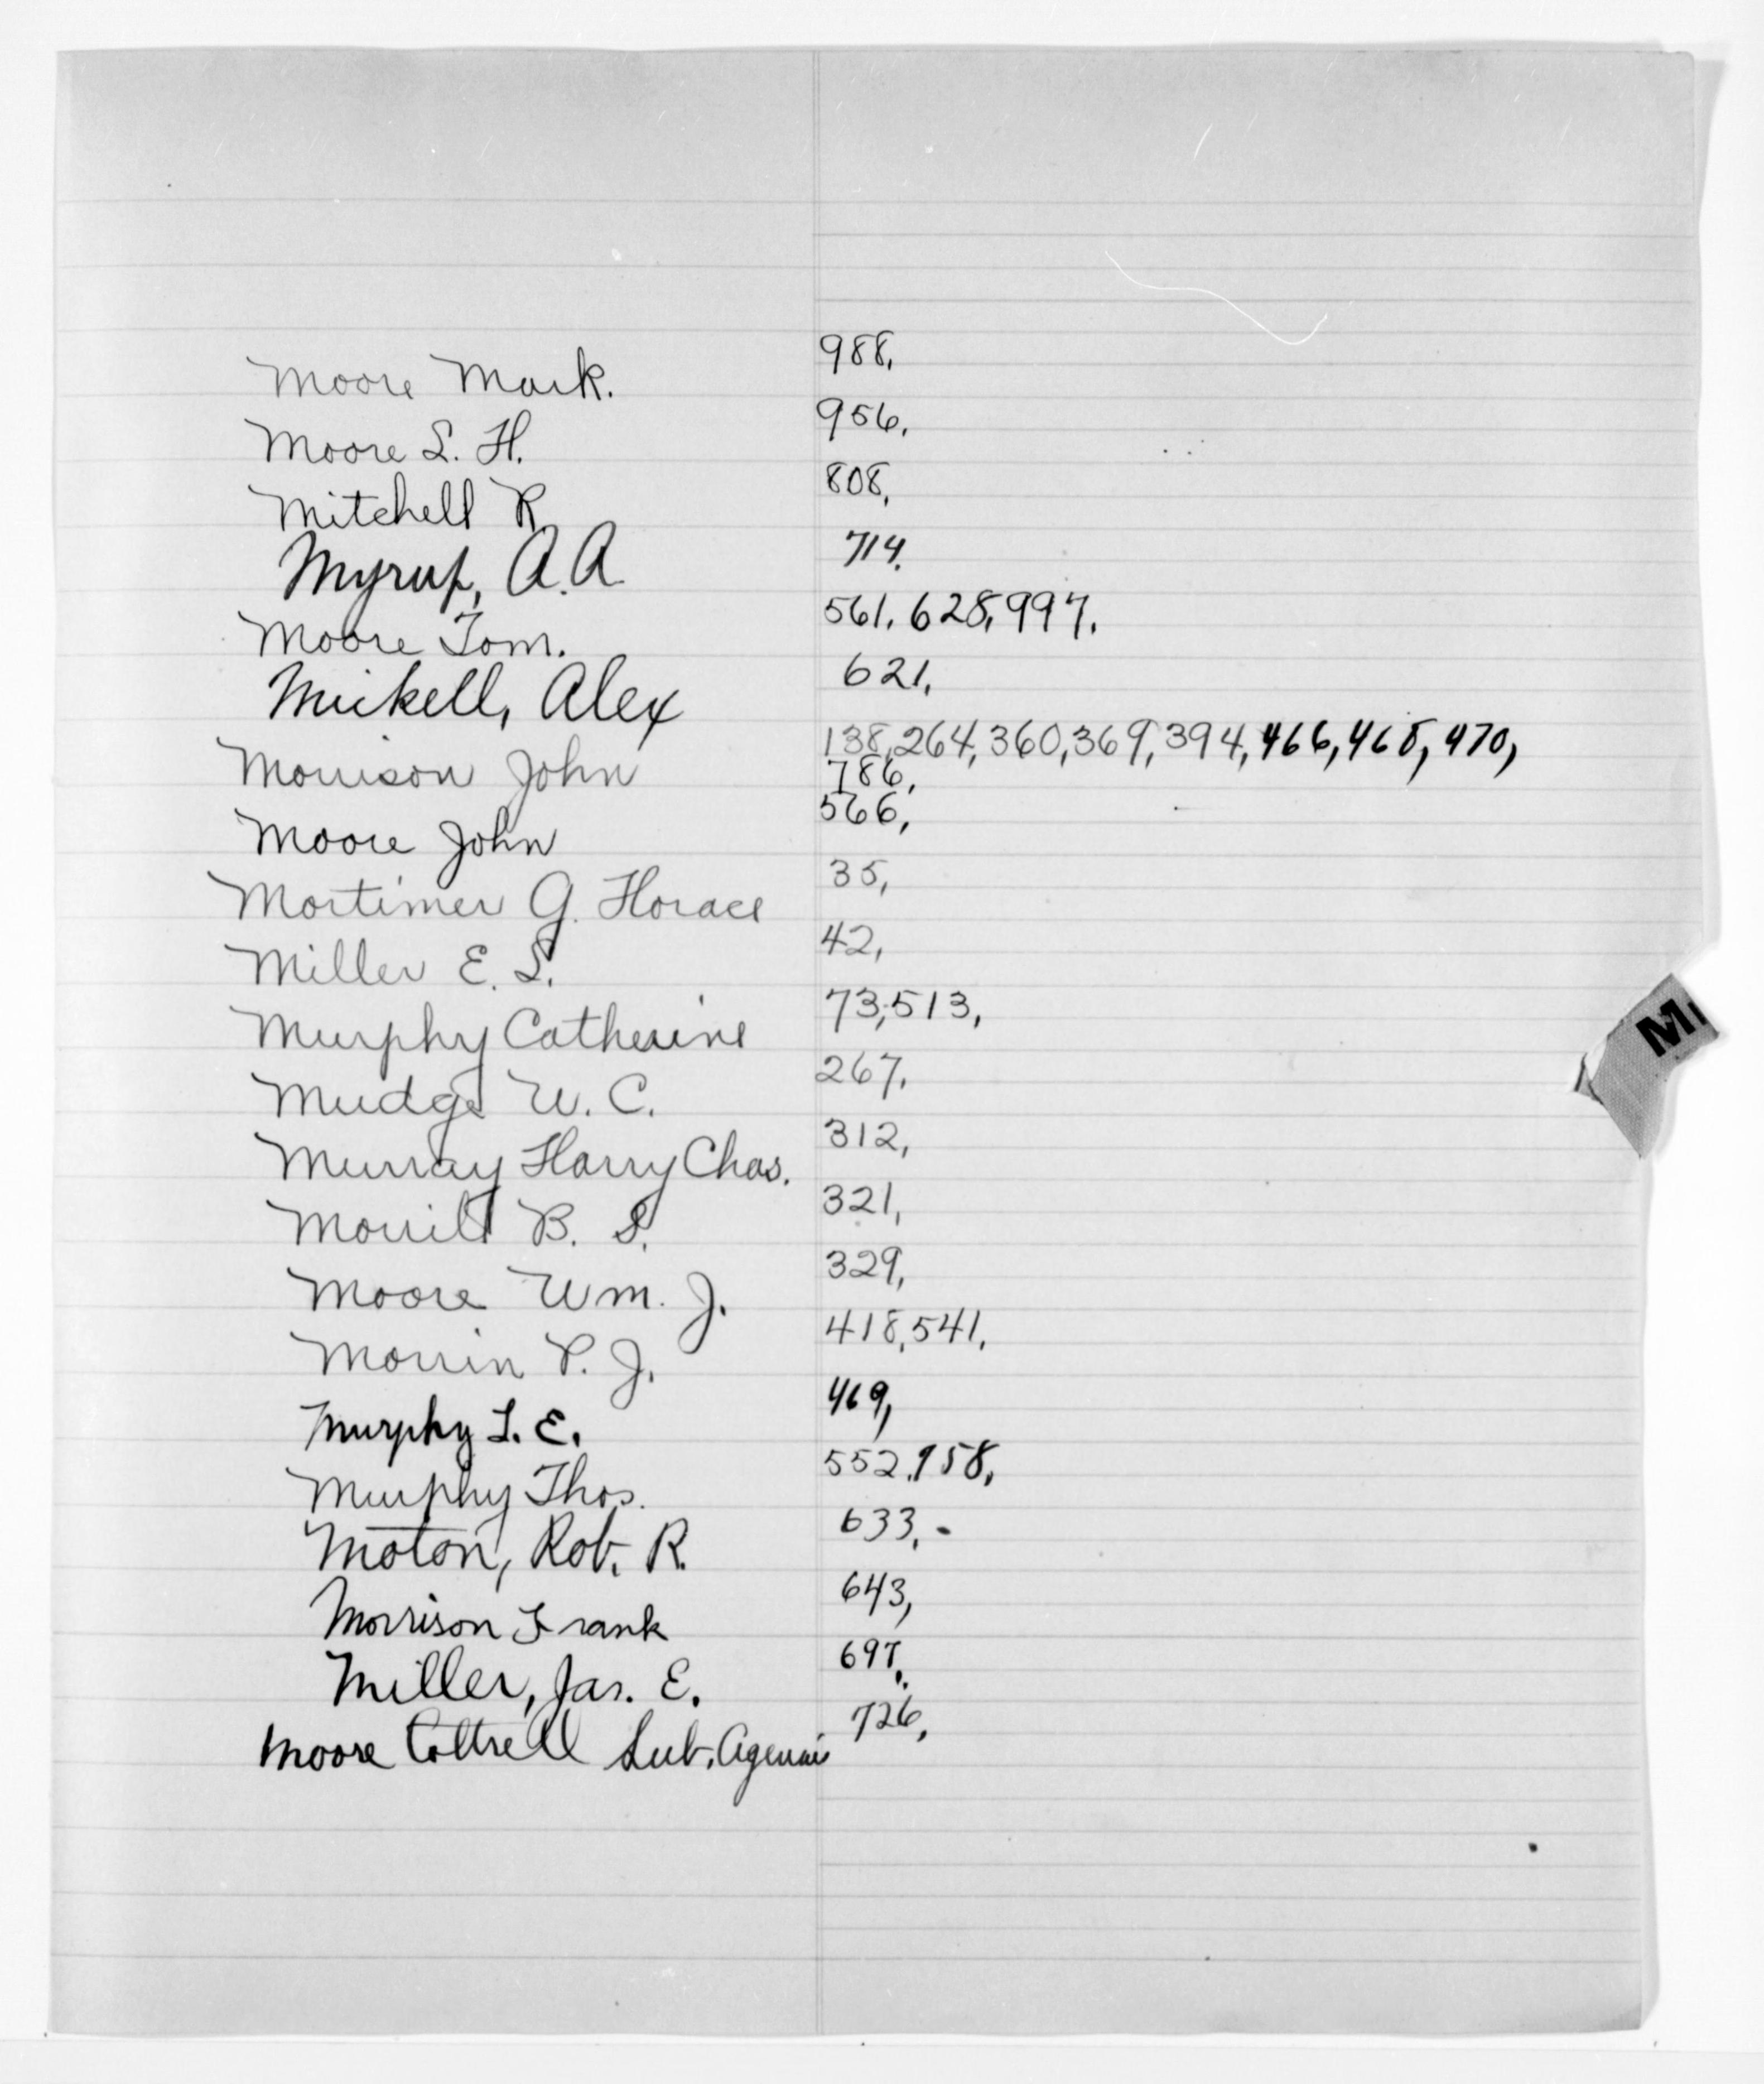 Moore Mark. 988,
Moore S. H. 956,
Mitchell R. 808,
Myrup, A. A 714.
Moore Tom. 561, 628, 997.
Mickell, Alex 621,
Morrison John 138, 264, 360, 369, 394, 466, 468, 470,
786,
Moore John 566,
Mortimer G. Horace 35,
Miller E. S. 42,
Murphy Catherine 73, 513,
Mudge W. C. 267,
Murray Harry Chas. 312,
Morrill B. S. 321,
Moore Wm. J. 329,
Morrin P. J. 418, 541,
Murphy L. E. 469,
Murphy Thos. 552, 958,
Moton, Rob. R. 633,
Morrison Frank 643,
Miller, Jas. E. 697,
Moore Cottrell Sub. 726,
M